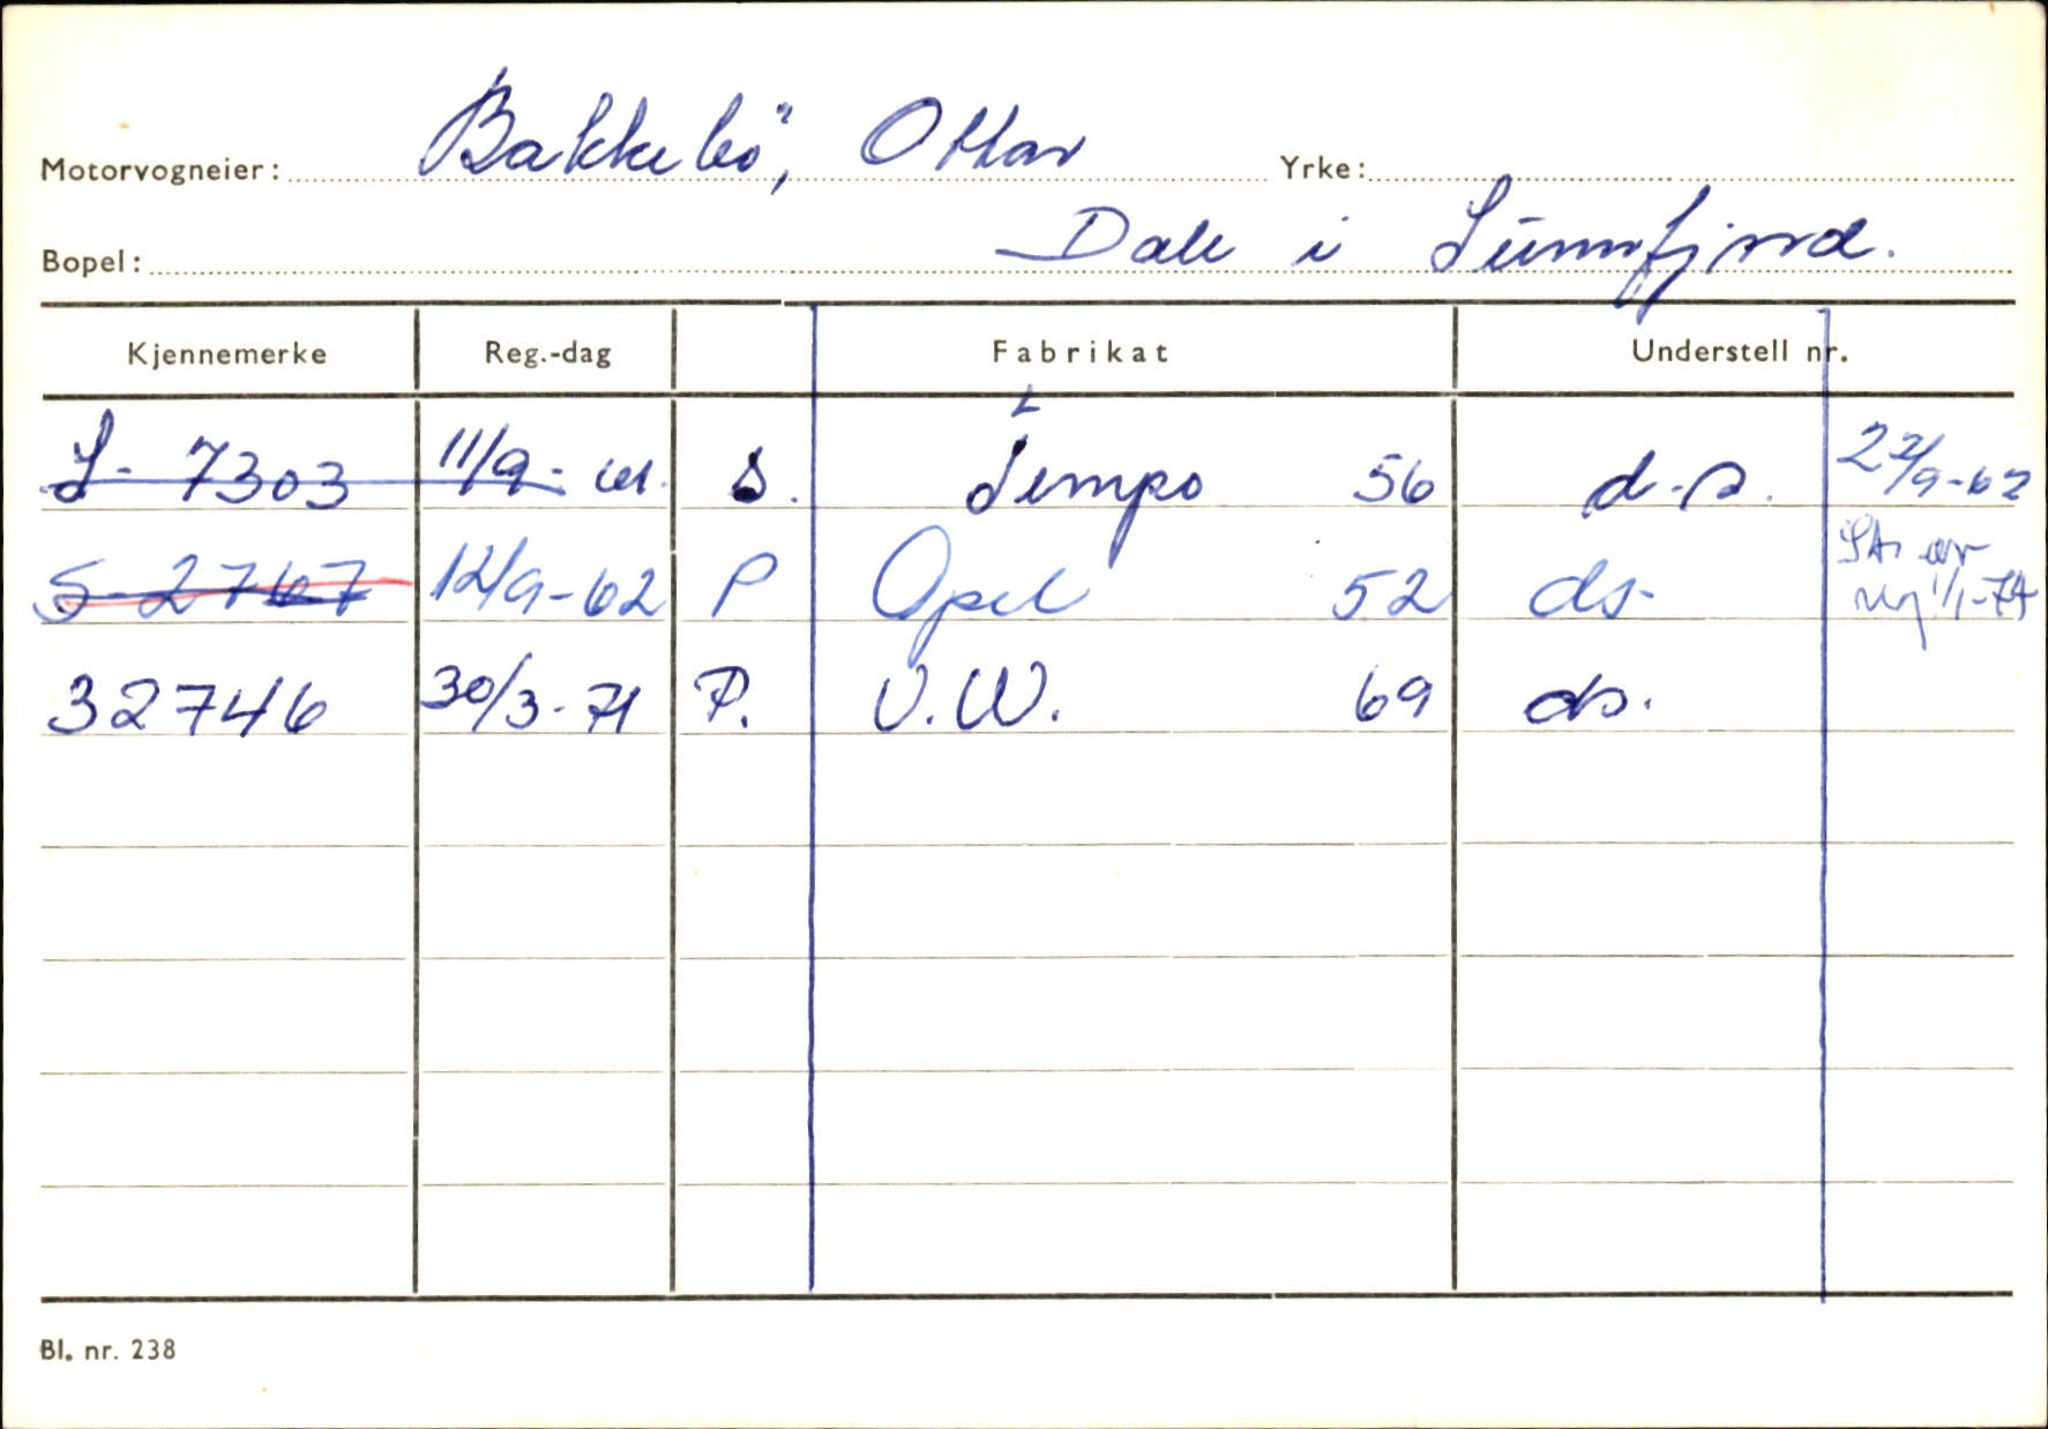 Motorvogneier: Bakkebö, Ottar Yrke:
Bopel: Dale i Sunnfjord.
Kjennemerke Reg.-dag Fabrikat Understell nr.
S- 7303 11/9- 61. S. Tempo 56 d.s. 22/9-62
S-2767 12/9-62 P Opel 52 ds- Str av
reg 1/1-74
32746 30/3-71 P. V.W. 69 ds.
Bl. nr. 238